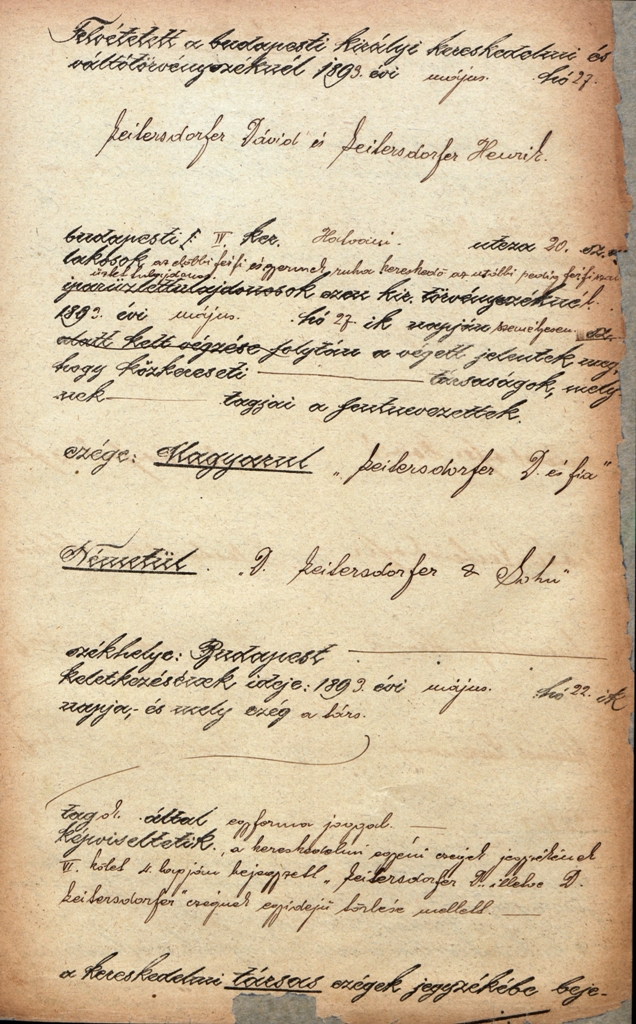 Felvétetett a budapesti királyi kereskedelmi és
váltótörvényszéknél 1893. évi május. hó 27.
Zeilersdorfer Dávid és Zeilersdorfer Henrik.
budapesti IV ker. Hatvani. utcza 20. sz.
lakosok, az előbbi férfi és gyermek ruha kereskedő az utóbbi pedig férfi
üzlettulajdonos
iparüzlettulajdonosok ezen kir. törvényszéknél
1893. évi május. hó 27. ik napján személyesen
alatt kelt végzése folytán a végett jelentek meg,
hogy közkereseti társaságok, mely
nek tagjai a fentnevezettek.
czége: Magyarul „Zeilersdorfer D. és fia"
Németül. „D. Zeilersdorfer & Sohn"
székhelye: Budapest
keletkezésének ideje: 1893. évi május. hó 22. ik
napja,- és mely czég a társ.
tagok által egyforma joggal.
képviseltetik, a kereskedelmi egyéni czégek jegyzékének
kötet 4. lapján bejegyzett „Zeilersdorfer D. illetve D.
Zeilersdorfer" czégnek egyidejű törlése mellett.
a kereskedelmi társas czégek jegyzékébe beje-